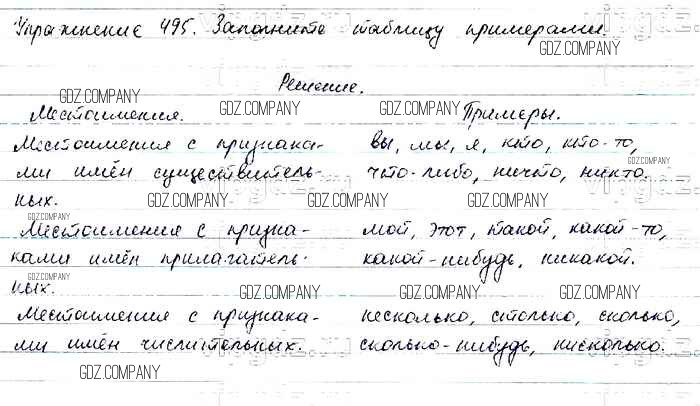 Упражнение 495. Заполните таблицу примерами.
GDZ.COMPANY
Решение.
GDZ.COMPANY GDZ.COMPANY GDZ.COMPANY
Местоимения. Примеры.
Местоимения с признака- вы, мы, я, кто, кто-то,
GDZ.COMPANY
ми имён существитель- что-либо, ничто, никто.
ных. GDZ.COMPANY GDZ.COMPANY GDZ.COMPANY
Местоимения с призна- мой, этот, такой, какой-то,
ками имён прилагатель- какой-нибудь, никакой.
GDZ.COMPANY
ных. GDZ.COMPANY GDZ.COMPANY GDZ.COMPANY
Местоимения с признака- несколько, столько, сколько,
ми имён числительных. сколько-нибудь, нисколько.
GDZ.COMPANY